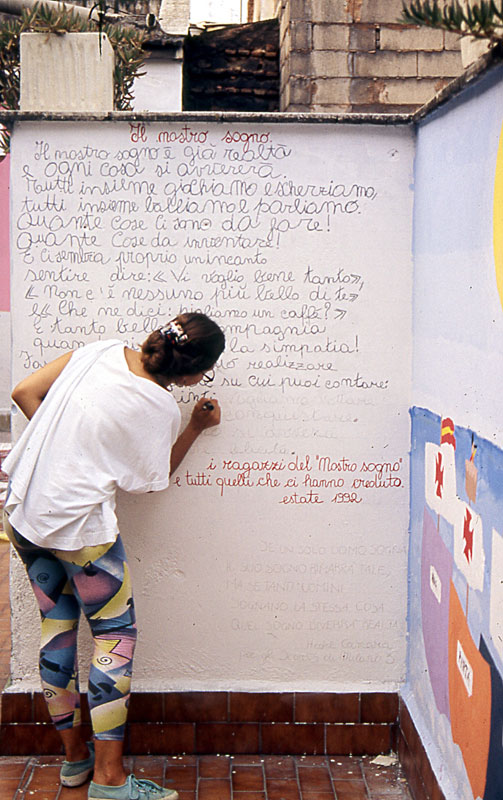 Il nostro sogno.
Il nostro sogno è già realtà
e ogni cosa si avvererà.
Tutti insieme giochiamo e scherziamo,
tutti insieme balliamo e parliamo.
Quante cose ci sono da fare!
Quante cose da inventare!
E ci sembra proprio un incanto
sentire dire: « Vi voglio bene tanto»,
« Non c'è nessuno più bello di te»
e « Che ne dici: pigliamo un caffè? »
È tanto bella compagnia
quan la simpatia!
realizzare
su cui puoi contare:
i ragazzi del "Nostro sogno"
e tutti quelli che ci hanno creduto.
estate 1992
SE UN SOLO UOMO SOGNA
IL SUO SOGNO RIMARRÀ TALE,
MA SE TANTI UOMINI
SOGNANO LA STESSA COSA
QUEL SOGNO DIVERRÀ REALTÀ
PINTA